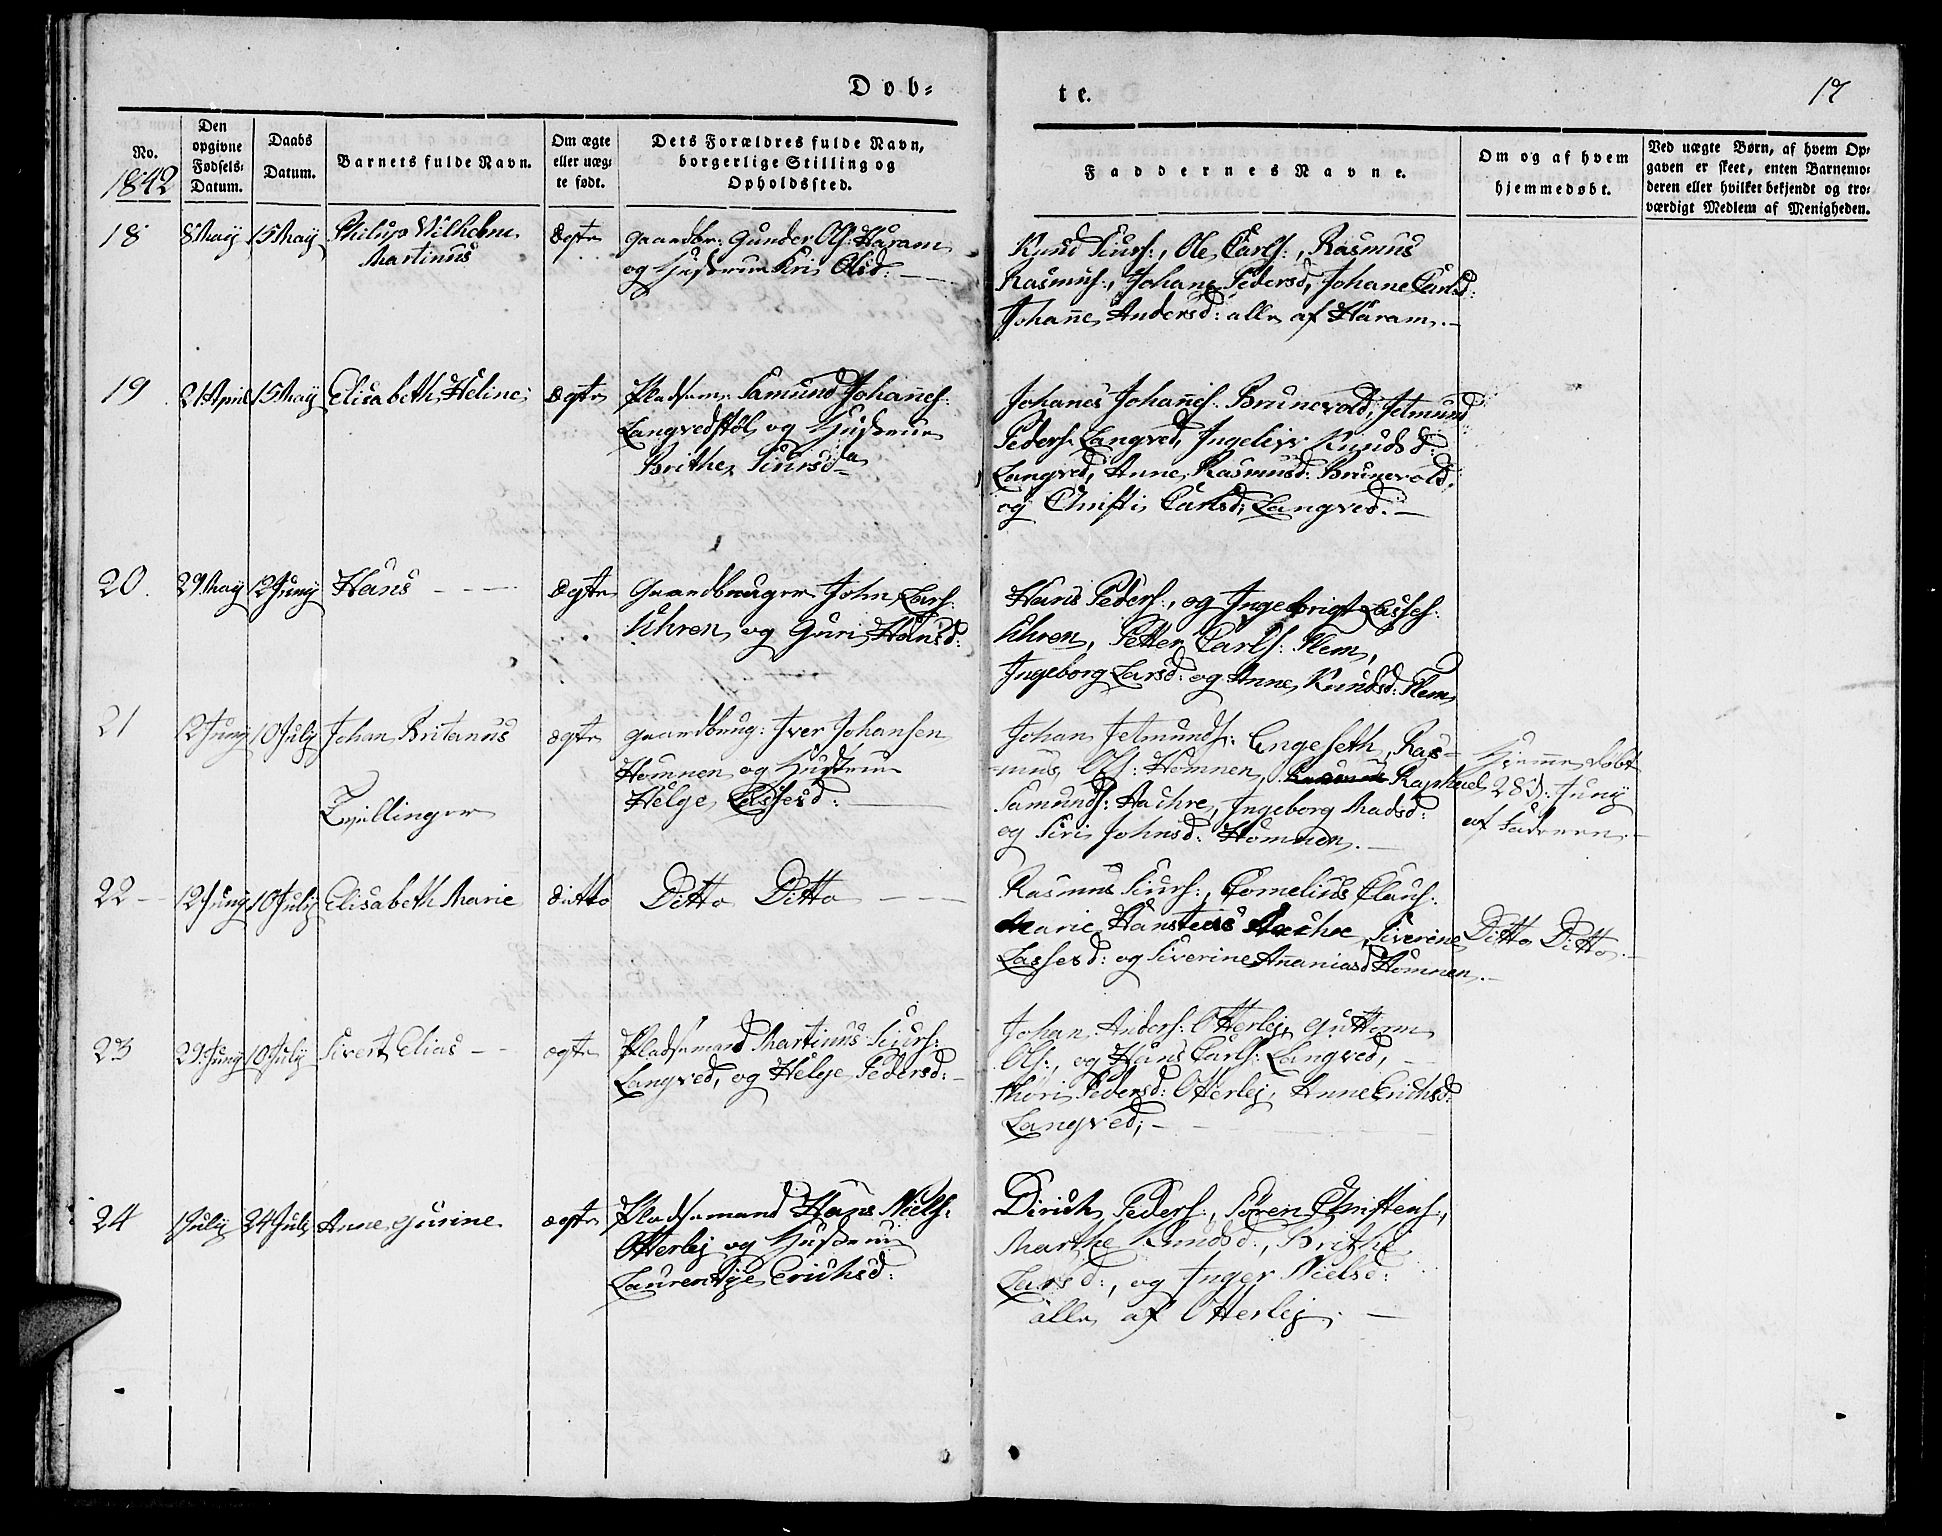 Døb-
te.
17
No.
1842
Den
opgivne
Fødsels-
Datum.
Daabs
Datum.
Barnets fulde Navn.
Om ægte
eller uæg-
te født.
Dets Forældres fulde Navn,
borgerlige Stilling og
Opholdssted.
Faddernes Navne.
Om og af hvem
hjemmedøbt.
Ved uægte Børn, af hvem Op-
gaven er skeet, enten Barnemo-
deren eller hvilket bekjendt og tro-
værdigt Medlem af Menigheden.
18
8 May
15 May
Philip Vilhelm
Martinus
Ægte
Gaardbr: Gunder Ols: Haram
og Hustrue Kri Olsd:
Knud Siurs:, Ole Carls:, Rasmus
Rasmus:, Johane Pedersd, Johane Carlsd:
Johane Andersd: alle af Haram.
19
21 April
15 May
Elisabeth Heline
Ægte
Pladsm. Samund Johanes:
Langvedstøl, og Hustrue
Brithe, Siursda
Johanes Johanes: Brunevold, Jetmund
Peders: Langved, Ingelier Knudsd:
Langved, Anne Rasmusd: Brunevold,
og Christi Carlsd, Langved.
20.
29 May
12 Juny
Hans
Ægte
Gaardbruger John Lars:
Uhren og Guri Hansd:
Hans Peders:, og Ingebrigt Lasses:
Uhren, Petter Carls: Flem,
Ingeborg Larsd: og Anne Knudsd: Flem
21
12 Juny
10 July
Johan Britanus
Tvillinger
ægte
gaardbrug: Iver Johansen
Homnen og Hustrue
Helge Lassesd:
Johan Jetmunds: Engeseth, Ras-
mus Ols: Homnen, Raphael
Samunds: Aachre, Ingeborg Madsd:
og Siri Johnsd: Homnen.
Hjemme døbt
28d: Juny
af Faderen.
22
12 Juny
10 July
Elisabeth Marie
ditto
Ditto Ditto
Rasmus Siurs:, Cornelius Claus:
Marie Hansteis Aachre, Siverine
Lassesd: og Siverine Ananiasd Homnen.
Ditto Ditto.
23
29 Juny
10 July
Sivert Elias
ægte
Pladsemand Martinus Siurs:
Langved, og Helge Pedersd:
Johan Anders: Otterlej, Guttorm
Ols:, og Hans Carls: Langved,
Thori Pedersd: Otterlej, Anne Erichsd:
Langved;
24
1 July
24 July
Anne Gurine
ægte
Pladsemand Hans Niels:
Otterlej og Hustrue
Laurentze Erichsd:
Dirich Peders:, Søren Christens:,
Marthe Knudsd:, Brithe
Larsd:, og Inger Nielsd:
alle af Otterlej.